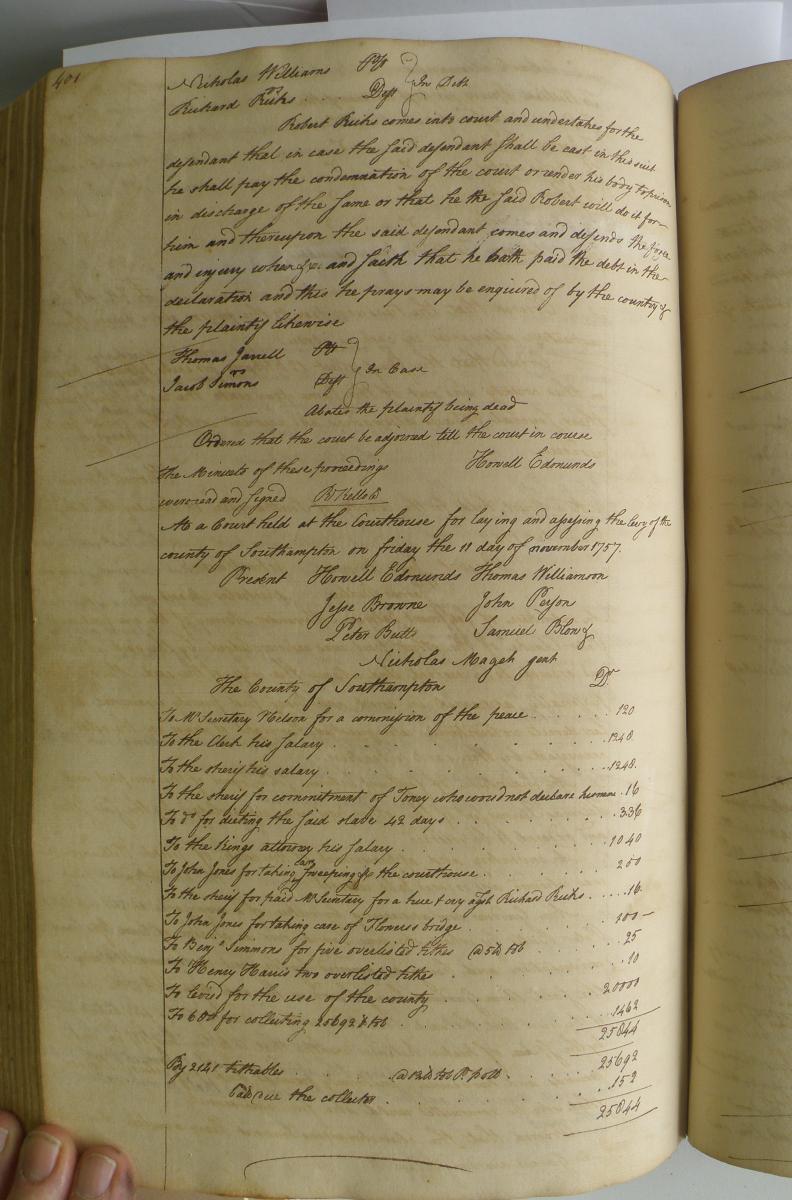 401
Nicholas Williams Plt
Richard Ricks . . . . Deft } In Debt
Robert Ricks comes into court and undertakes for the
defendant that in case the said defendant shall be cast in this suit
he shall pay the condemnation of the court or render his body to prison
in discharge of the same or that he the said Robert will do it for
him and thereupon the said defendant comes and defends the force
and injury when &c. and saith that he hath paid the debt in the
declaration and this he prays may be enquired of by the country &
the plaintif likewise
Thomas Jarrell Plt
Jacob Simons Deft } In Case
Abates the plaintif being dead
Ordered that the court be adjorned till the court in course
The Minuets of these proceedings Howell Edmunds
were read and signed R Kello Cl
At a Court held at the Courthouse for laying and assessing the levy of the
county of Southampton on friday the 11 day of november 1757.
Present Howell Edmunds Thomas Williamson
Jesse Browne John Person
Peter Butts Samuel Blow &
Nicholas Maget gent
The County of Southampton Dr
To Mr Secretary Nelson for a commission of the peace . . . . 120
To the Clerk his salary . . . . . 1248
To the sherif his salary . . . . . 1248
To the sherif for commitment of Toney who woud not declare his name . 16
To do for dieting the said slave 42 days . . . . . 336
To the Kings attorney his salary . . . . 1040
To John Jones for taking care sweeping &c the courthouse . . . 200
To the sherif for paid Mr Secretary for a hue & cry agst Richard Ricks . . . . 16
To John Jones for taking case of Flowers bridge . . . . 100
To Benja Simmons for five overlisted tithes @ 5 lb tob . . . 25
To Henry Harris two overlisted tithes . . . . 10
To levied for the use of the county . . . . 20000
To 6 for collecting 25692 lb tob . . . . 1462
25844
By 2141 tithables . . . @ 12 lb tob Pr poll . . . 25692
due the collector . . . . . 152
25844